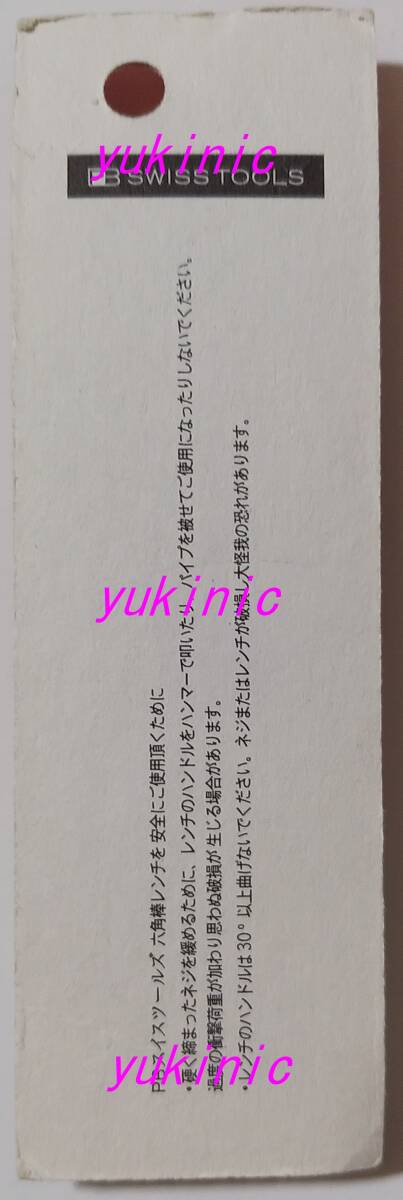 yukinic
PB SWISS TOOLS
PBスイスツールズ 六角棒レンチを 安全にご使用頂くために
・硬く締まったネジを緩めるために、レンチのハンドルをハンマーで叩いたり、パイプを被せてご使用になったりしないでください。
過度の衝撃荷重が加わり思わぬ破損が生じる場合があります。
・レンチのハンドルは30°以上曲げないでください。ネジまたはレンチが破損し大怪我の恐れがあります。
yukinic
yukinic